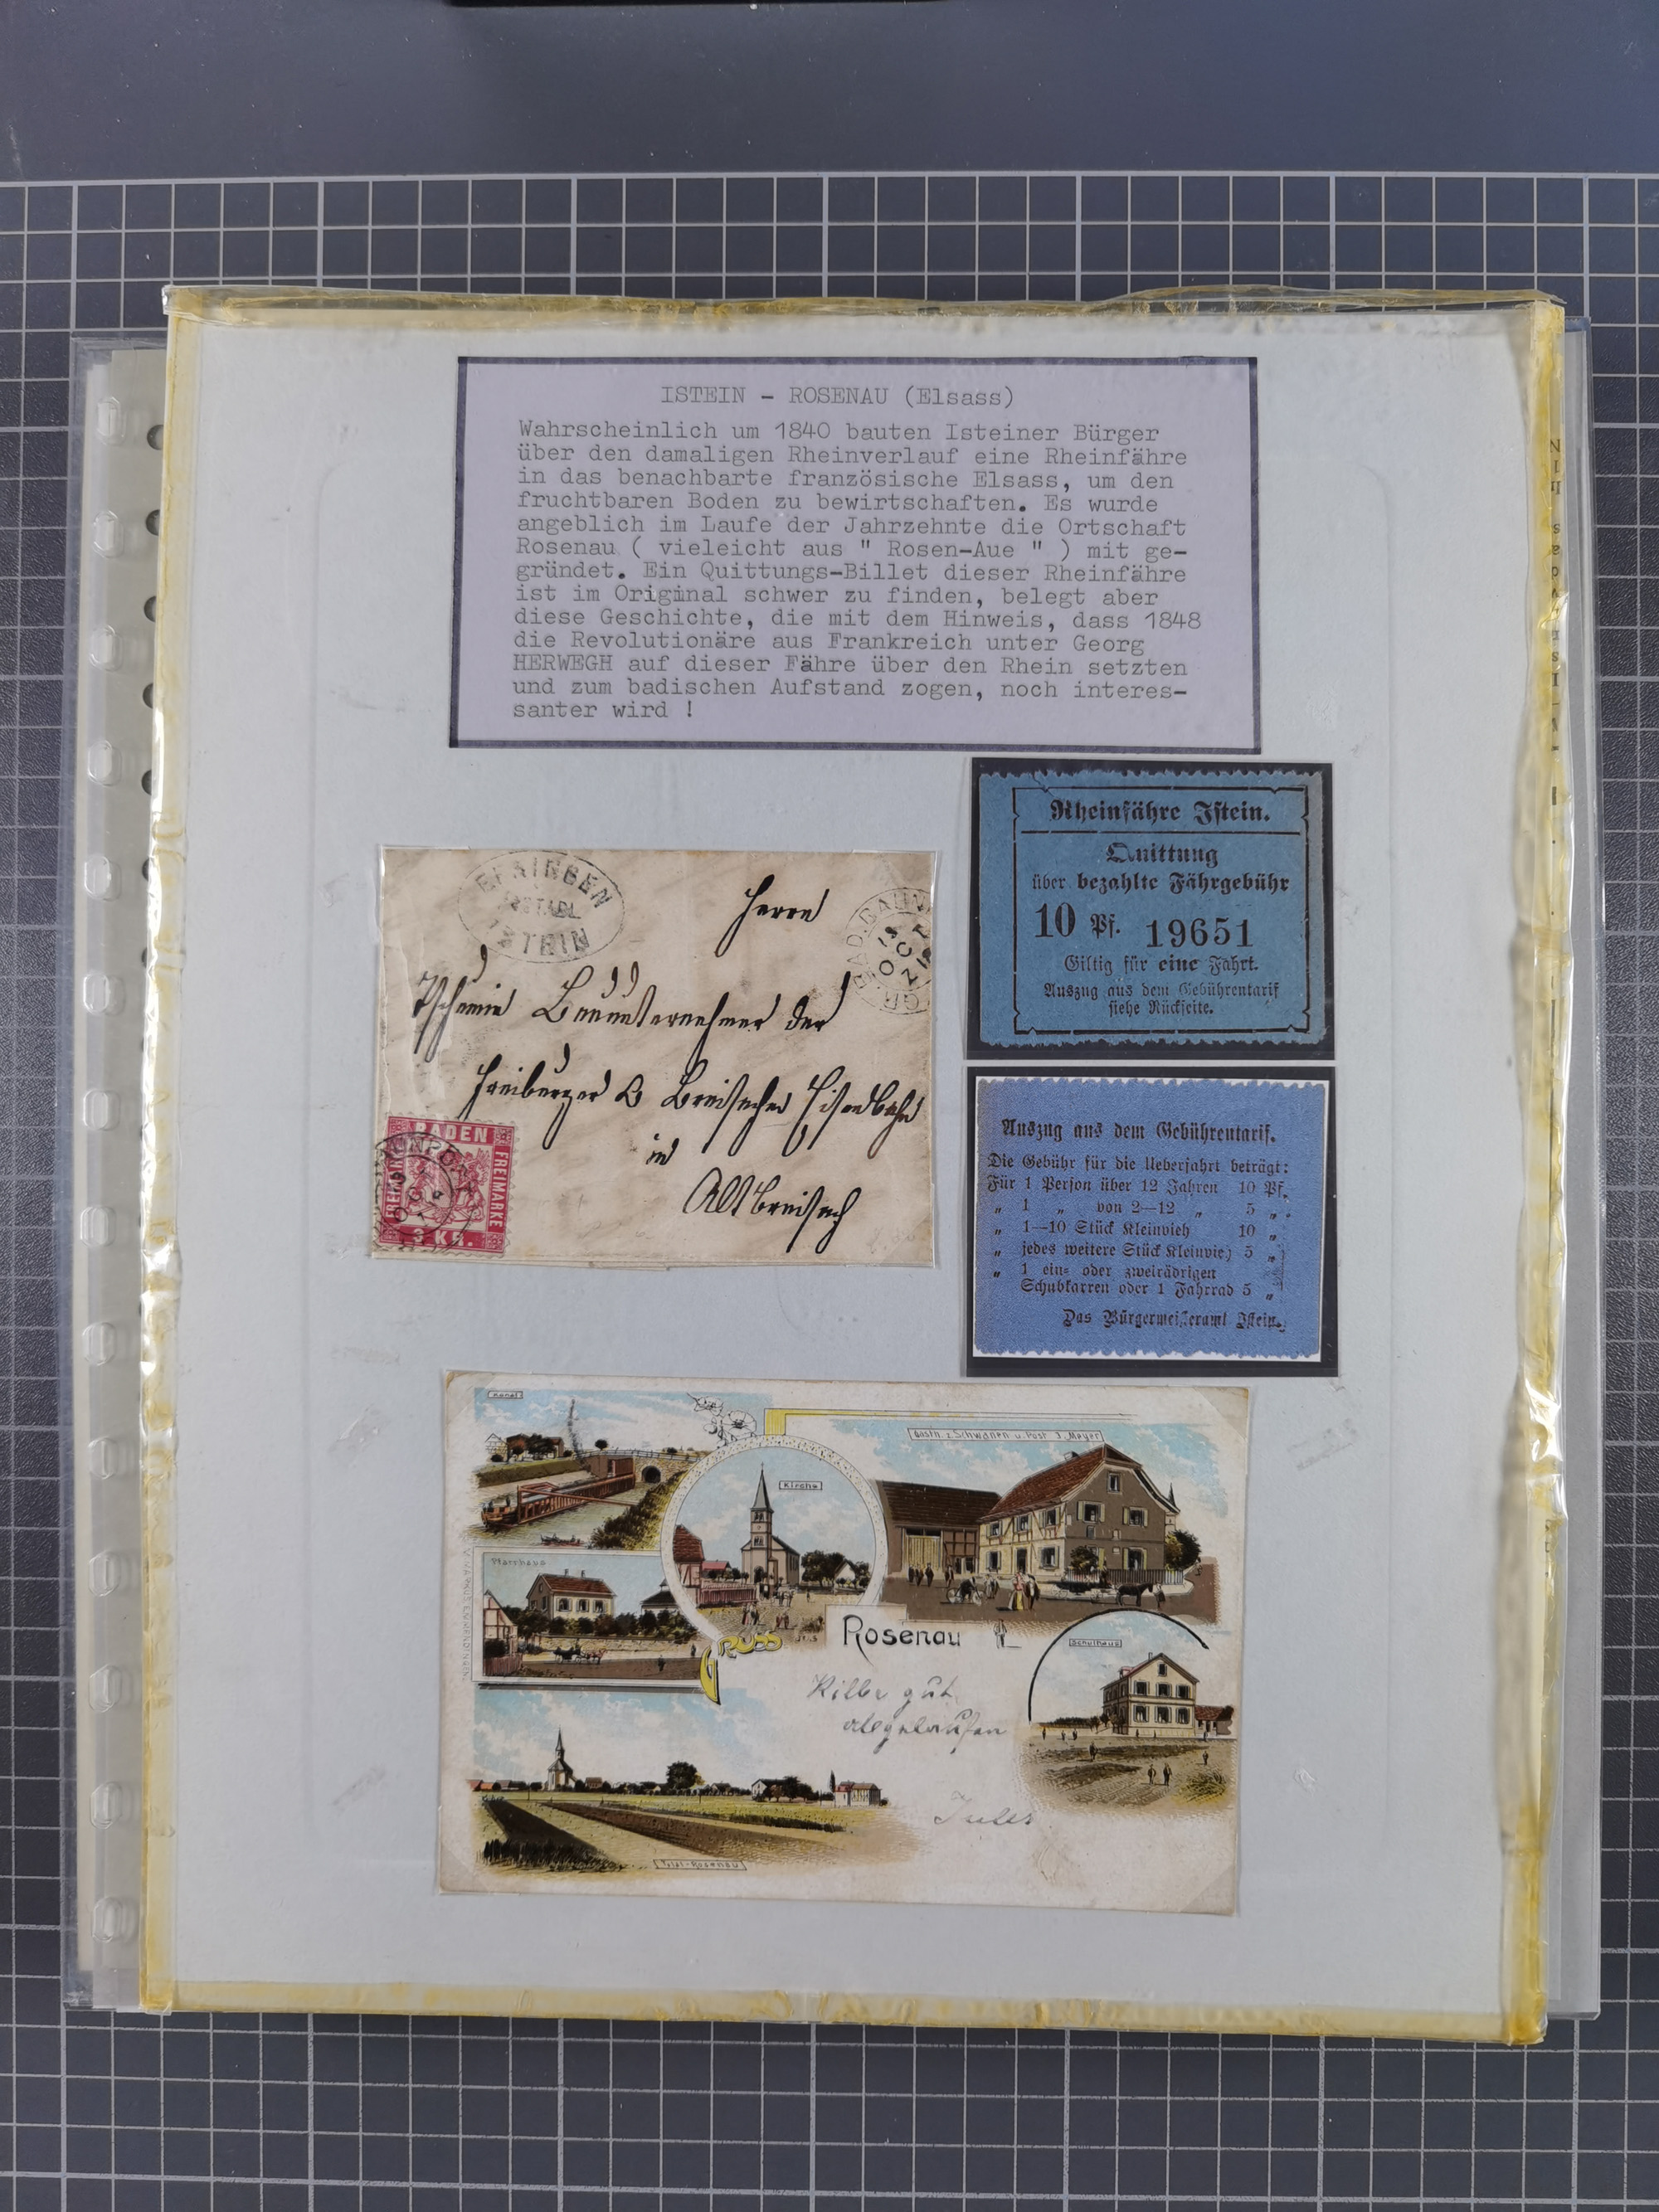 ISTEIN - ROSENAU (Elsass)
Wahrscheinlich um 1840 bauten Isteiner Bürger
über den damaligen Rheinverlauf eine Rheinfähre
in das benachbarte französische Elsass, um den
fruchtbaren Boden zu bewirtschaften. Es wurde
angeblich im Laufe der Jahrzehnte die Ortschaft
Rosenau ( vieleicht aus " Rosen-Aue " ) mit ge-
gründet. Ein Quittungs-Billet dieser Rheinfähre
ist im Original schwer zu finden, belegt aber
diese Geschichte, die mit dem Hinweis, dass 1848
die Revolutionäre aus Frankreich unter Georg
HERWEGH auf dieser Fähre über den Rhein setzten
und zum badischen Aufstand zogen, noch interes-
santer wird !
Rheinfähre Istein.
Quittung
über bezahlte Fährgebühr
10 Pf. 19651
Giltig für eine Fahrt.
Auszug aus dem Gebührentarif
siehe Rückseite.
ISTEIN
GR. BAD. BAHN
19
OCT
Z
Herrn
Bauunternehmer der
Freiburger & Breisacher Eisenbahn
in
Altbreisach
BADEN
FREIMARKE
FREIMARKE
3 KR.
Auszug aus dem Gebührentarif.
Die Gebühr für die Ueberfahrt beträgt:
Für 1 Person über 12 Jahren 10 Pf.
„ 1 „ von 2—12 „ 5 „
„ 1—10 Stück Kleinvieh 10 „
„ jedes weitere Stück Kleinvieh 5 „
„ 1 ein- oder zweirädrigen
Schubkarren oder 1 Fahrrad 5 „
Das Bürgermeisteramt Istein.
Kanal
Gasth. z. Schwanen u. Post J. Meyer
Kirche
Pfarrhaus
GRUSS
Rosenau
Schulhaus
gut
abgelaufen
Jules
Total-Rosenau